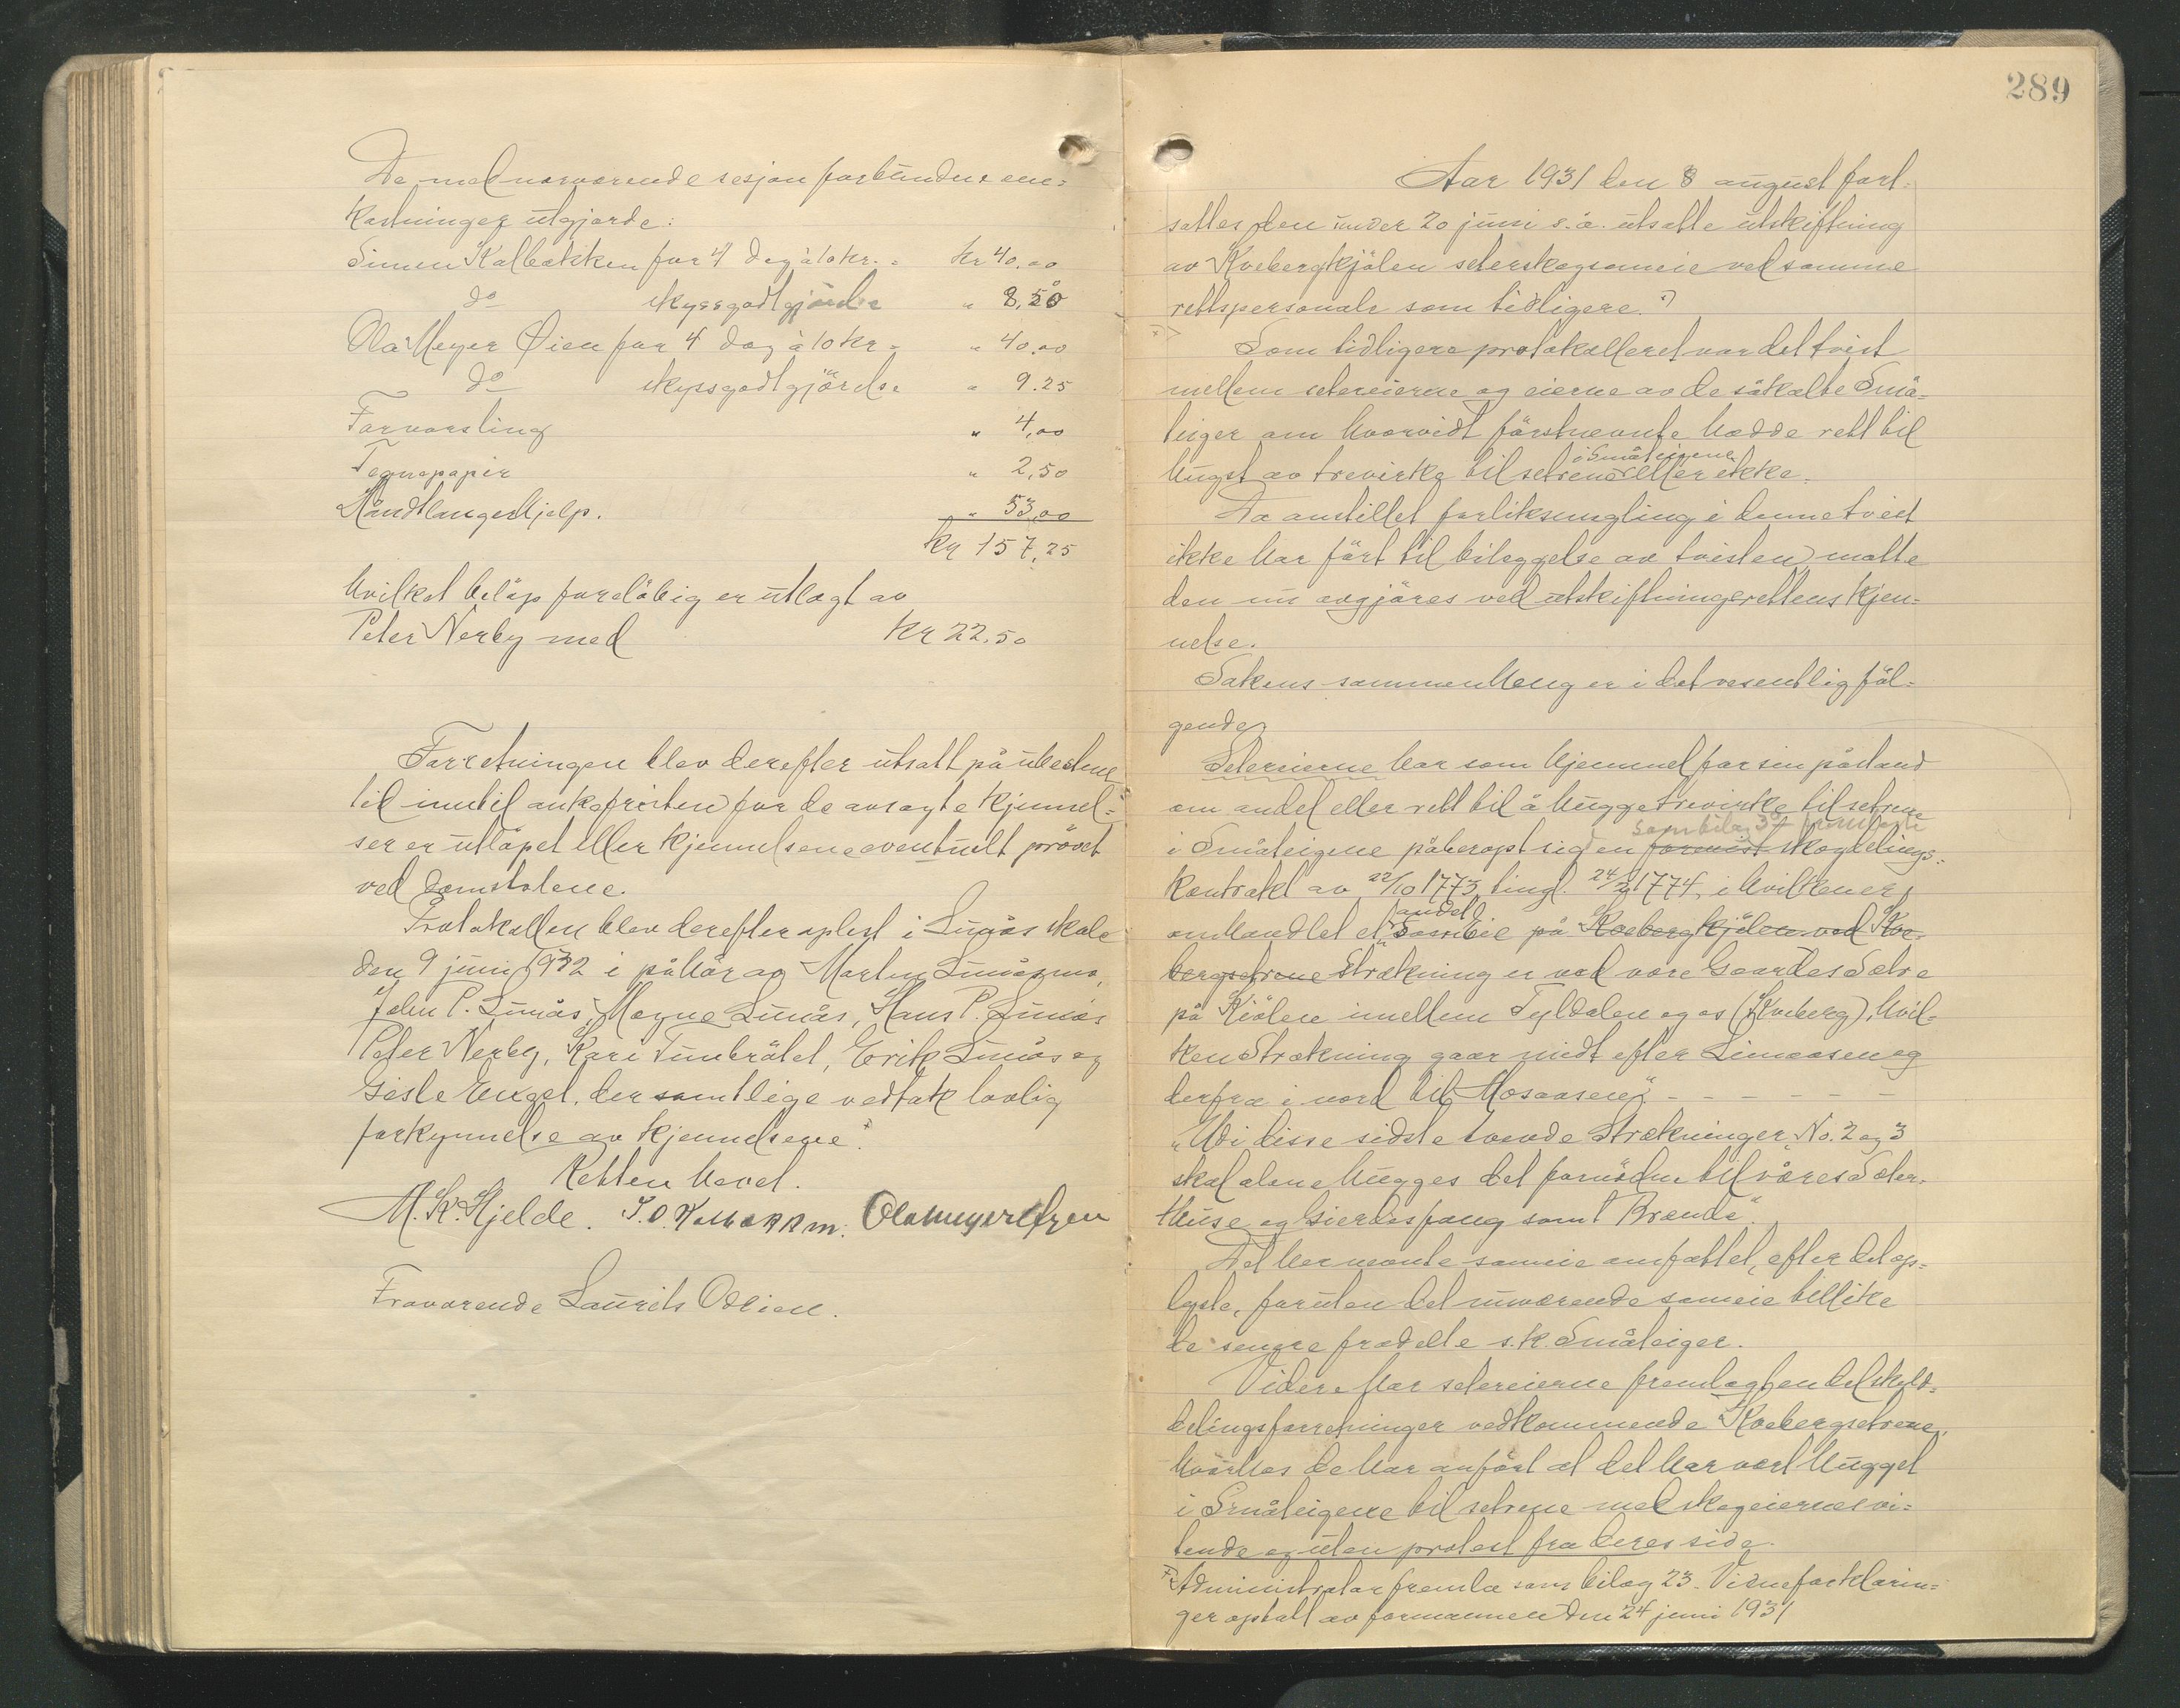 De med nærværende sesjon forbundne om-
kostninger utgjorde:
Simen Kalbækken for 4 dag à 10 kr. = kr 40,00
do skyssgodtgjörelse " 8,50
Ola Meyer Öien for 4 dag à 10 kr = " 40,00
do skyssgodtgjörelse " 9.25
Forvarsling " 4,00
Tegnepapir " 2,50
Håndtlangerhjelp. " 53,00
kr 157,25
hvilket belöp forelöbig er utlagt av
Peter Nerby med kr 22.50
Forretningen blev derefter utsatt på ubestemt
tid inntil ankefristen for de avsagte kjennel-
ser er utlöpet eller kjennelsene eventuelt prövet
ved domstolene.
Protokollen blev derefter oplest i Lunås skole
den 9 juni 1932 i påhör av Martin Lunåsmo,
John P. Lunås, Magne Lunås, Hans P. Lunås
Peter Nerby, Kari Tunbråtet, Erik Lunås og
Gisle Enget, der samtlige vedtok lovlig
forkynnelse av kjennelsene.
Retten hevet.
M. K. Hjelde. S. O. Kalbækken. Ola Meyer Öyen
Fraværende Laurits Odlien.
289
Aar 1931 den 8 august fort-
sattes den under 20 juni s. å. utsatte utskiftning
av Kvebergkjölen seterskogsameie ved samme
rettspersonale som tidligere. x)
Som tidligere protokolleret var det tvist
mellem setereierne og eierne av de såkalte Små-
teiger om hvorvidt förstnevnte hadde rett til
i Småteigene
hugst av trevirke til setrene eller ikke.
Da anstillet forliksmegling i denne tvist
ikke har fört til bileggelse av tvisten, måtte
den nu avgjöres ved utskiftningsrettens kjen-
nelse.
Sakens sammenheng er i det vesentlig föl-
gende
Setereierne har som hjemmel for sin påstand
om andel eller rett til å hugge trevirke til setrene
som bilag 3 fremlagte
i Småteigene påberopt sig en forevist skogdelings-
kontrakt av 22/10 1773, tingl. 24/2 1774, i hvilken er
andel
omhandlet et Sameie på Kvebergkjölen ved Kve-
bergsetrene Strækning er ved vore Gaardes Sætre
på Kiölen imellem Tyldalen og os (Kveberg), hvil-
ken Strækning gaar midt efter Limaasen og
derfra i nord til Mosaasen" - - - - - -
"Udi disse sidste tvende Strækninger No. 2 og 3
skal alene hugges det fornödne til vores Sæter-
Huse og Gierdesfang samt Brænde".
Det her nevnte sameie omfattet, efter det op-
lyste, foruten det nuværende sameie tillike
de senere fradelte s. k. Småteiger.
Videre har setereierne fremlagt en del skyld-
delingsforretninger vedkommende Kvebergsetrene,
hvorhos de har anfört at det har vært hugget
i Småteigene til setrene med skogeiernes vi-
tende og uten protest fra deres side.
x) Administrator fremla som bilag 23. Vidneforklarin-
ger optatt av formannen den 24 juni 1931